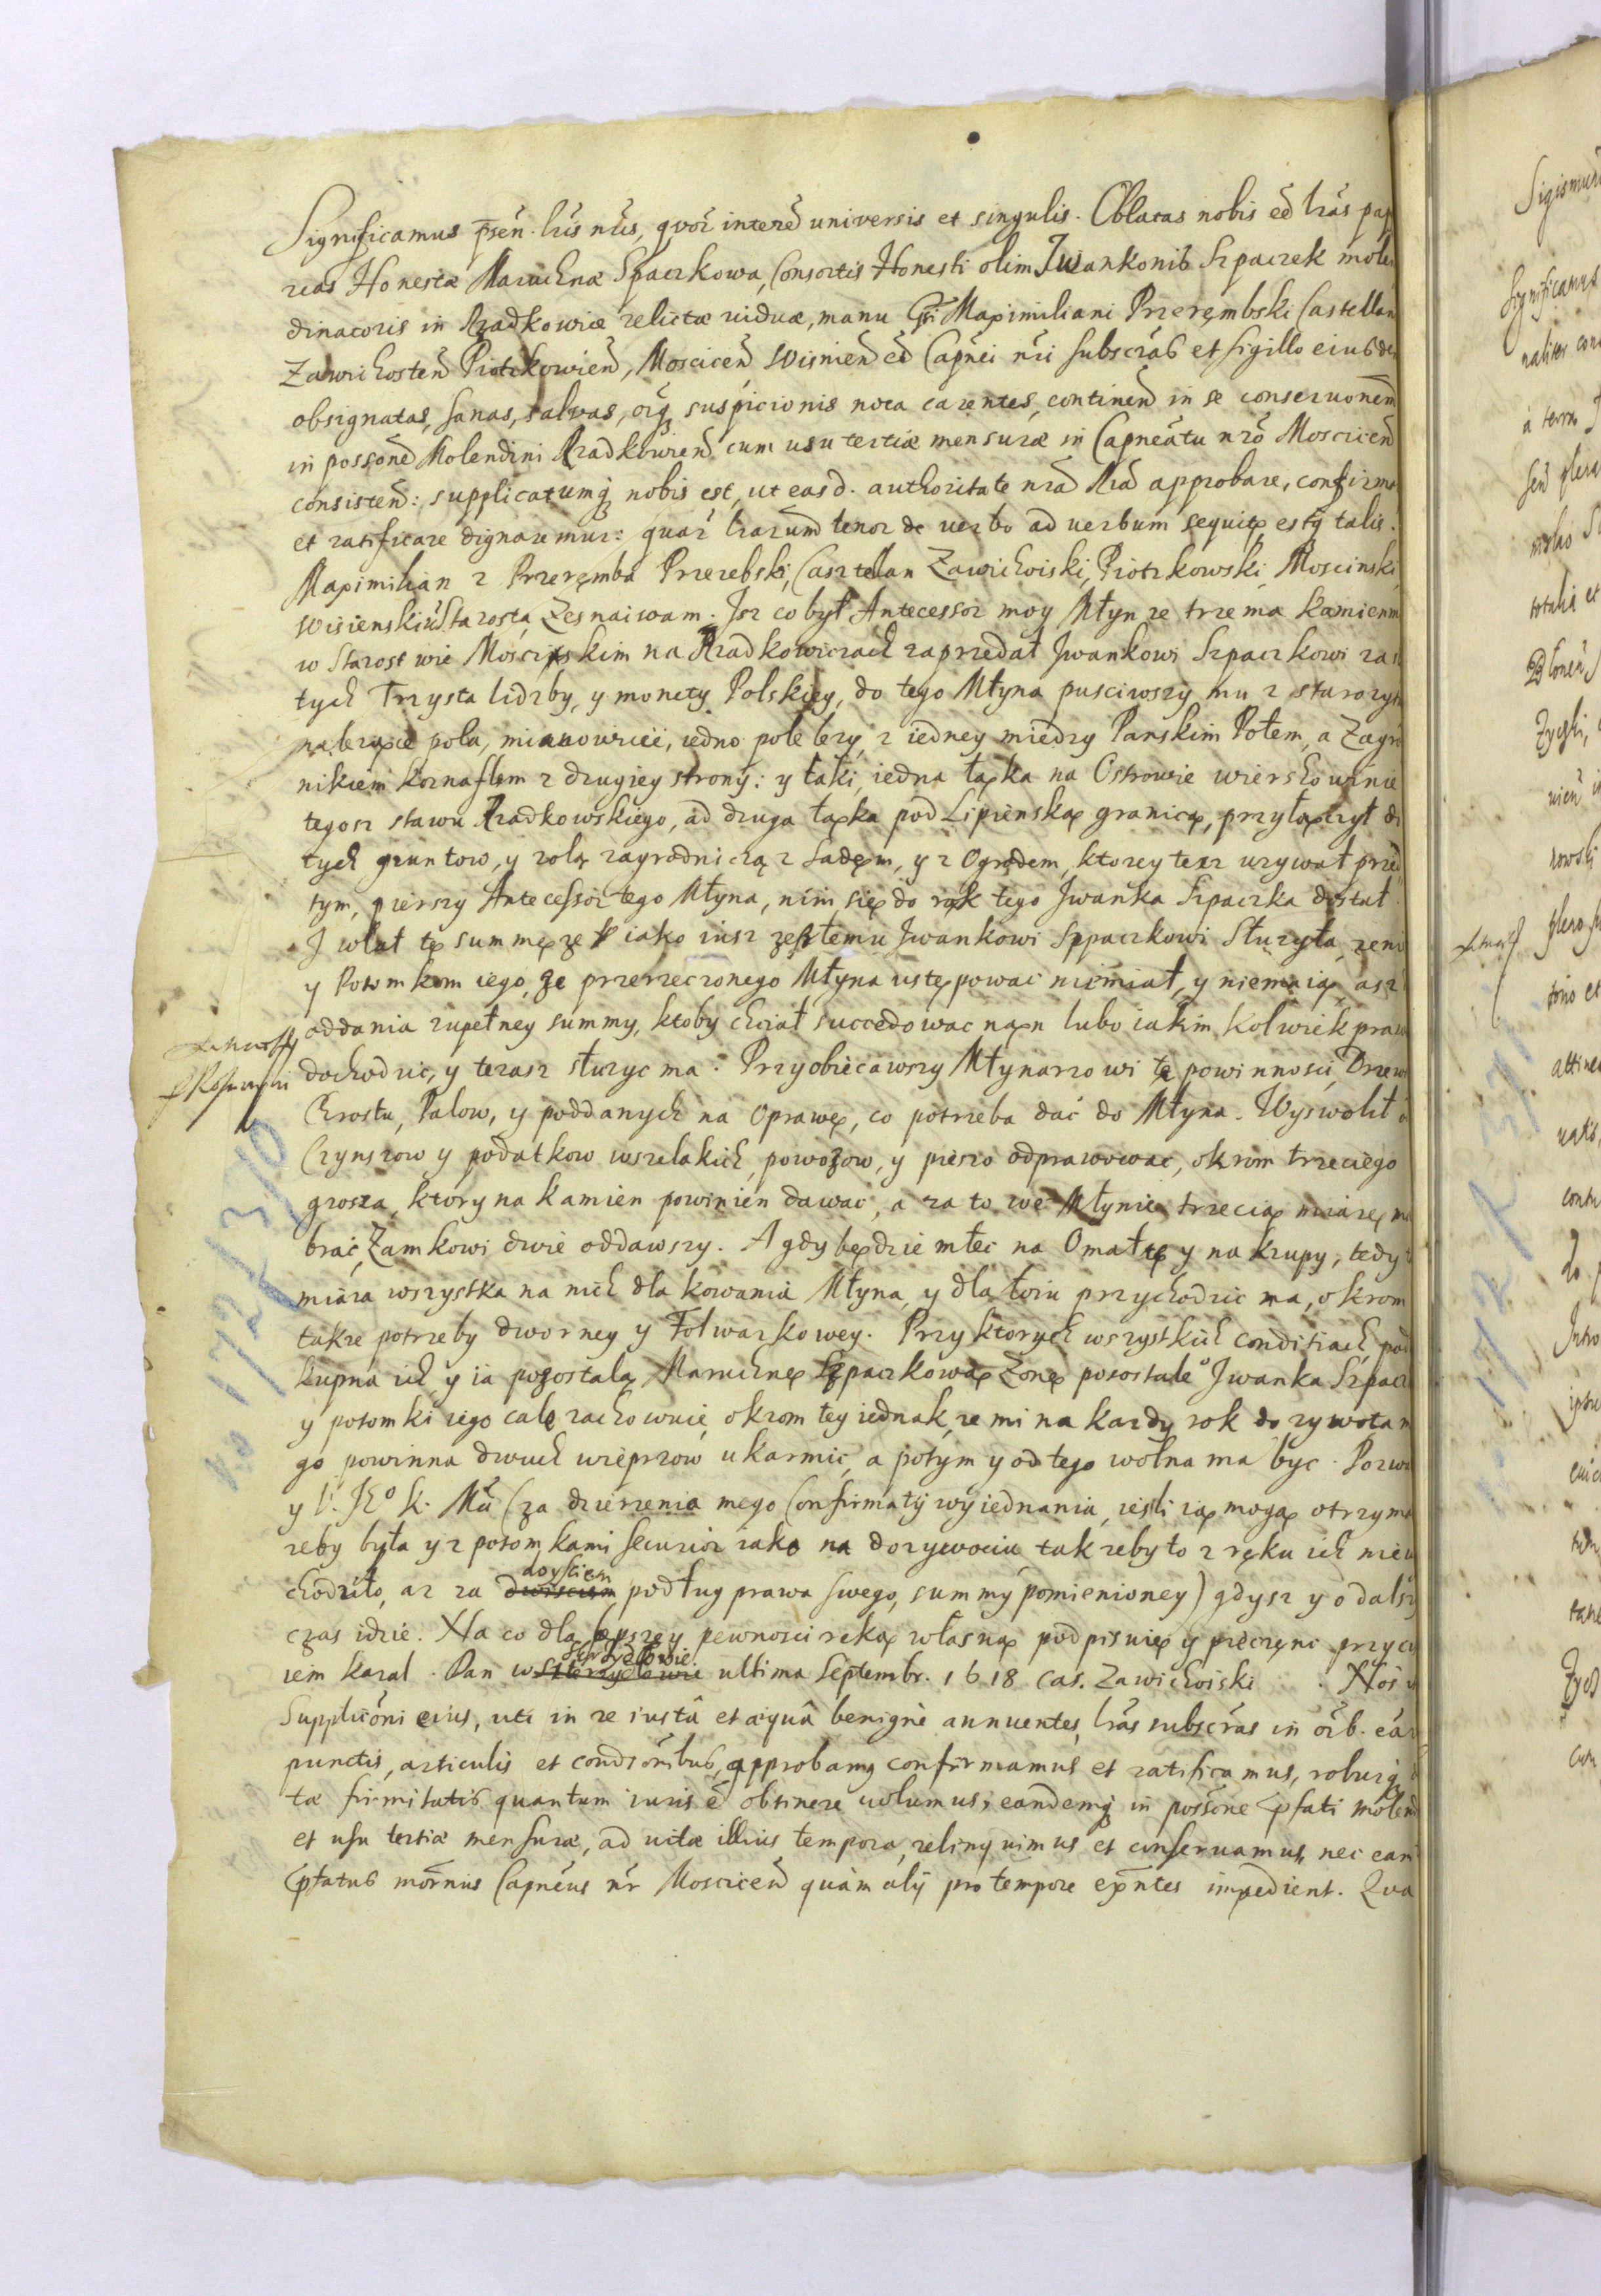 Significamus pñsen. lris nris, quor intereð universis et singulis. Oblatas nobis eð lras pap
reas Honestæ Maruchnæ Spaczkowa, Consortis Honesti olim Iwankonis Szpaczek molen
dinatoris in Rzadkowice relictæ viduæ, manu Gsi Maximiliani Przerębski Castellan
Zawichosteñ Piotrkowieñ, Mosciceñ Wisnieñ eð Capnei nri subscras et sigillo eiusdem
obsignatas, sanas, salvas, oiq suspicionis nota carentes, continen in se conservonem
in possone Molendini Rzadkowieñ cum usu tertiæ mensuræ in Capneatu nro Mosciceñ
consisteñ: supplicatumq nobis est, ut easd. authoritate nra Ra approbare, confirma
et ratificare dignaremur: quar lrarum tenor de verbo ad verbum sequitur estq talis.
Maximilian z Przeręmba Przerebski, Casztelan Zawichoiski, Piotrkowski, Moscinski,
Wisienski Starosta, Zesnaiwam. Isz co był Antecessor moy Młyn ze trzema kamienm
w Starostwie Moscinskim na Rzadkowiczach zaprzedał Iwankowi Szpaczkowi za z
tych Trzysta lidzby, y monety Polskiey, do tego Młyna pusciwszy mu z starozyt
należące pola, mianowicie, iedno pole lezy, z iedney miedzy Panskim Polem, a Zagro
nikiem Kornaflem z drugiey strony: y łaki, iedna łąka na Ostrowie wierzchowinie
tegosz stawu Rzadkowskiego, ad druga łąka pod Lipienską granicą, przyłączył do
tych gruntow, y rolą zagrodniczą z Sadem, y z Ogrodem, ktorey tesz uzywał przed
tym, pierszy Antecessor tego Młyna, nim się do rąk tego Iwanka Szpaczka dostał.
I wlał tę summę ze iako iusz zeszłemu Iwankowi Szpaczkowi Służyła, żeni
y Potomkom iego, ze przerzeczonego Młyna ustępować niemiał, y niemaią asz
oddania zupełney summy, ktoby chciał succedowac nań lubo iakim kolwiek praw
dochodzic, y terasz służyc ma. Przyobiecawszy Młynarzowi te powinnosci, Drzew
Chrostu, Palow, y poddanych na Oprawę, co potrzeba dać do Młyna. Wyswolił o
Czynszow y podatkow wszelakich, powozow, y pieszo odprawowac, okrom trzeciego
grosza, ktory na kamien powinien dawać, a za to we Młynie trzecią miarę ma
brać, Zamkowi dwie oddawszy. A gdy będzie mleć na Omaltę y na krupy, tedy t
miara wszystka na nich dla kowania Młyna, y dla łoiu przychodzic ma, okrom
takze potrzeby dworney y Folwarkowey. Przy ktorych wszystkich conditiach, pod
kupna ich, y ia pozostalą Maruchnę Szpaczkową Żonę pozostałe° Iwanka Szpacz
y potomki iego cale zachowuię, okrom tey iednak, ze mi na kazdy rok do zywota m
go powinna dwuch wieprzow ukarmic, a potym y od tego wolna ma być. Pozwa
y V. IE° K. Mći (za dzierzenia mego Confirmatij wyiednania, iesli ią mogą otrzyma
zeby była y z potomkami securior iako na dozywociu tak zeby to z ręku ich niew
chodziło, az za doysciem podług prawa swego, summy pomienioney) gdysz y o dalszy
czas idzie. Na co dla lepszey pewnosci ręką własną podpisuię y pieczęnc przyci
iem kazal. Dan w Strzyclowie ultima Septembr. 1618 Cas. Zawichoiski. Nos
Supplicõni eius, uti in re iustâ et æquâ benignè annuentes, lras subscras in oib. ear
punctis, articulis et condiõnibus, approbamus confirmamus et ratificamus, roburq
tæ firmitatis quantum iuris ẽ obtinere volumus, eandemq in possone pfati molend
et usu tertiæ mensuræ, ad vitæ illius tempora, relinquimus et conservamus, nec ean
pfatus mornus Capneus nr Mosciceñ quàm alij pro tempore exñtes impedient. Qua
172 k 370
Sigismun
Significamus
à terra
totalis et
172 k 371